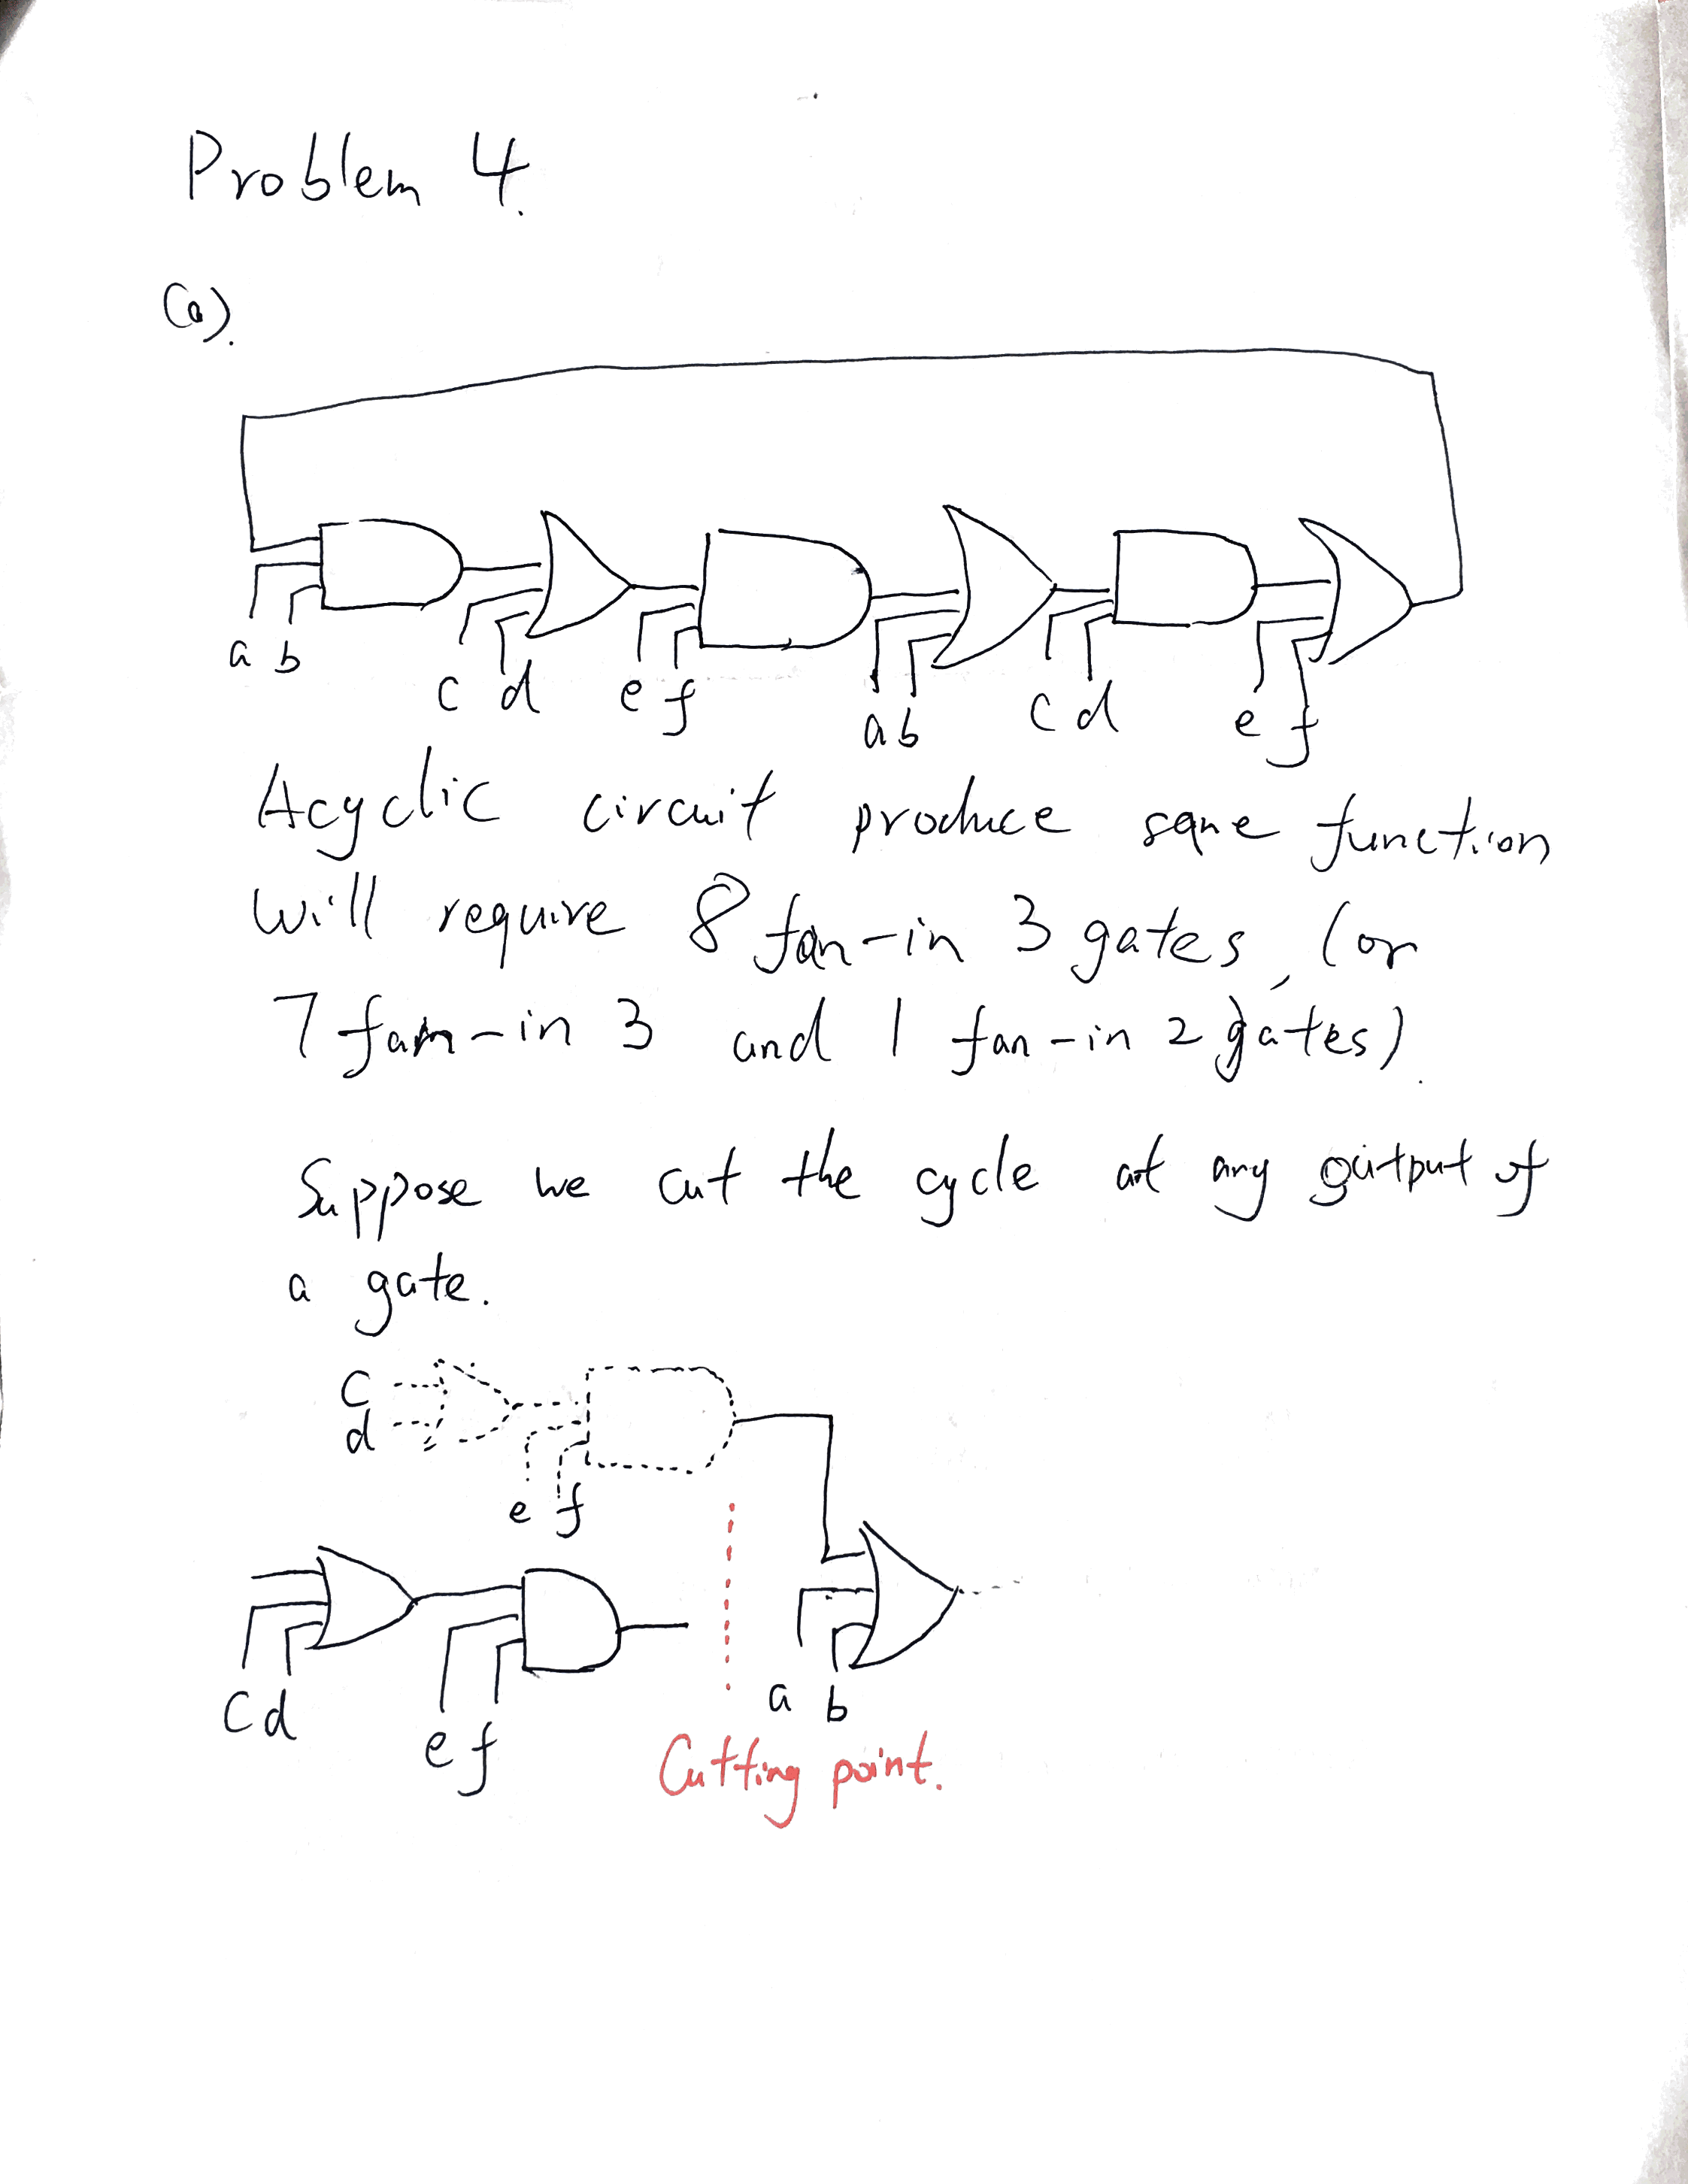 Problem 4.
(a).
a b
c d
e f
a b
c d
e f
Acyclic circuit produce same function
will require 8 fan-in 3 gates, (or
7 fam-in 3 and 1 fan-in 2 gates).
Suppose we cut the cycle at any output of
a gate.
c
d
e f
c d
e f
a b
Cutting point.